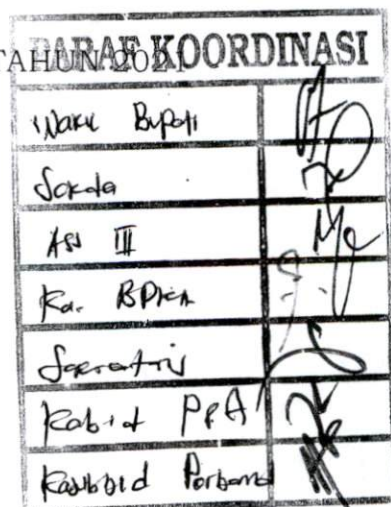 TAHUN 2021
PARAF KOORDINASI
Wakil Bupati
Sekda
Ass III
Ka. BPKA
Sekretaris
Kabid PPA
Kasubbid Perbend